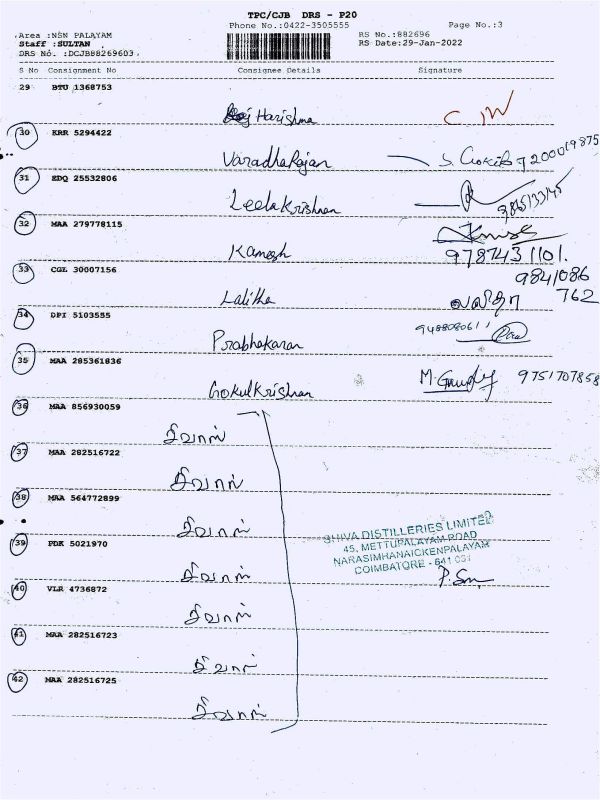 TPC/CJB DRS - P20
Phone No.:0422-3505555
Page No.:3
Area :NSN PALAYAM
Staff :SULTAN
DRS No. :DCJB88269603
RS No.:882696
RS Date:29-Jan-2022
S No Consignment No Consignee Details Signature
29 BTU 1368753
Harishma
30 KRR 5294422
VaradhaRajan
31 EDQ 25532806
LeelaKrishnan
32 MAA 279778115
Kamesh
9787431101.
33 CGL 30007156
9841086
762
Lalitha லலிதா
34 DPI 5103555
Prabhakaran
35 MAA 285361836
GokulKrishnan 9751707858
36 MAA 856930059
சிவாஸ்
37 MAA 282516722
சிவாஸ்
38 MAA 564772899
சிவாஸ்
39 PDK 5021970
சிவாஸ்
40 VLR 4736872
சிவாஸ்
41 MAA 282516723
சிவாஸ்
42 MAA 282516725
சிவாஸ்
SHIVA DISTILLERIES LIMITED
45, METTUPALAYAM ROAD
NARASIMHANAICKENPALAYAM
COIMBATORE - 641 031